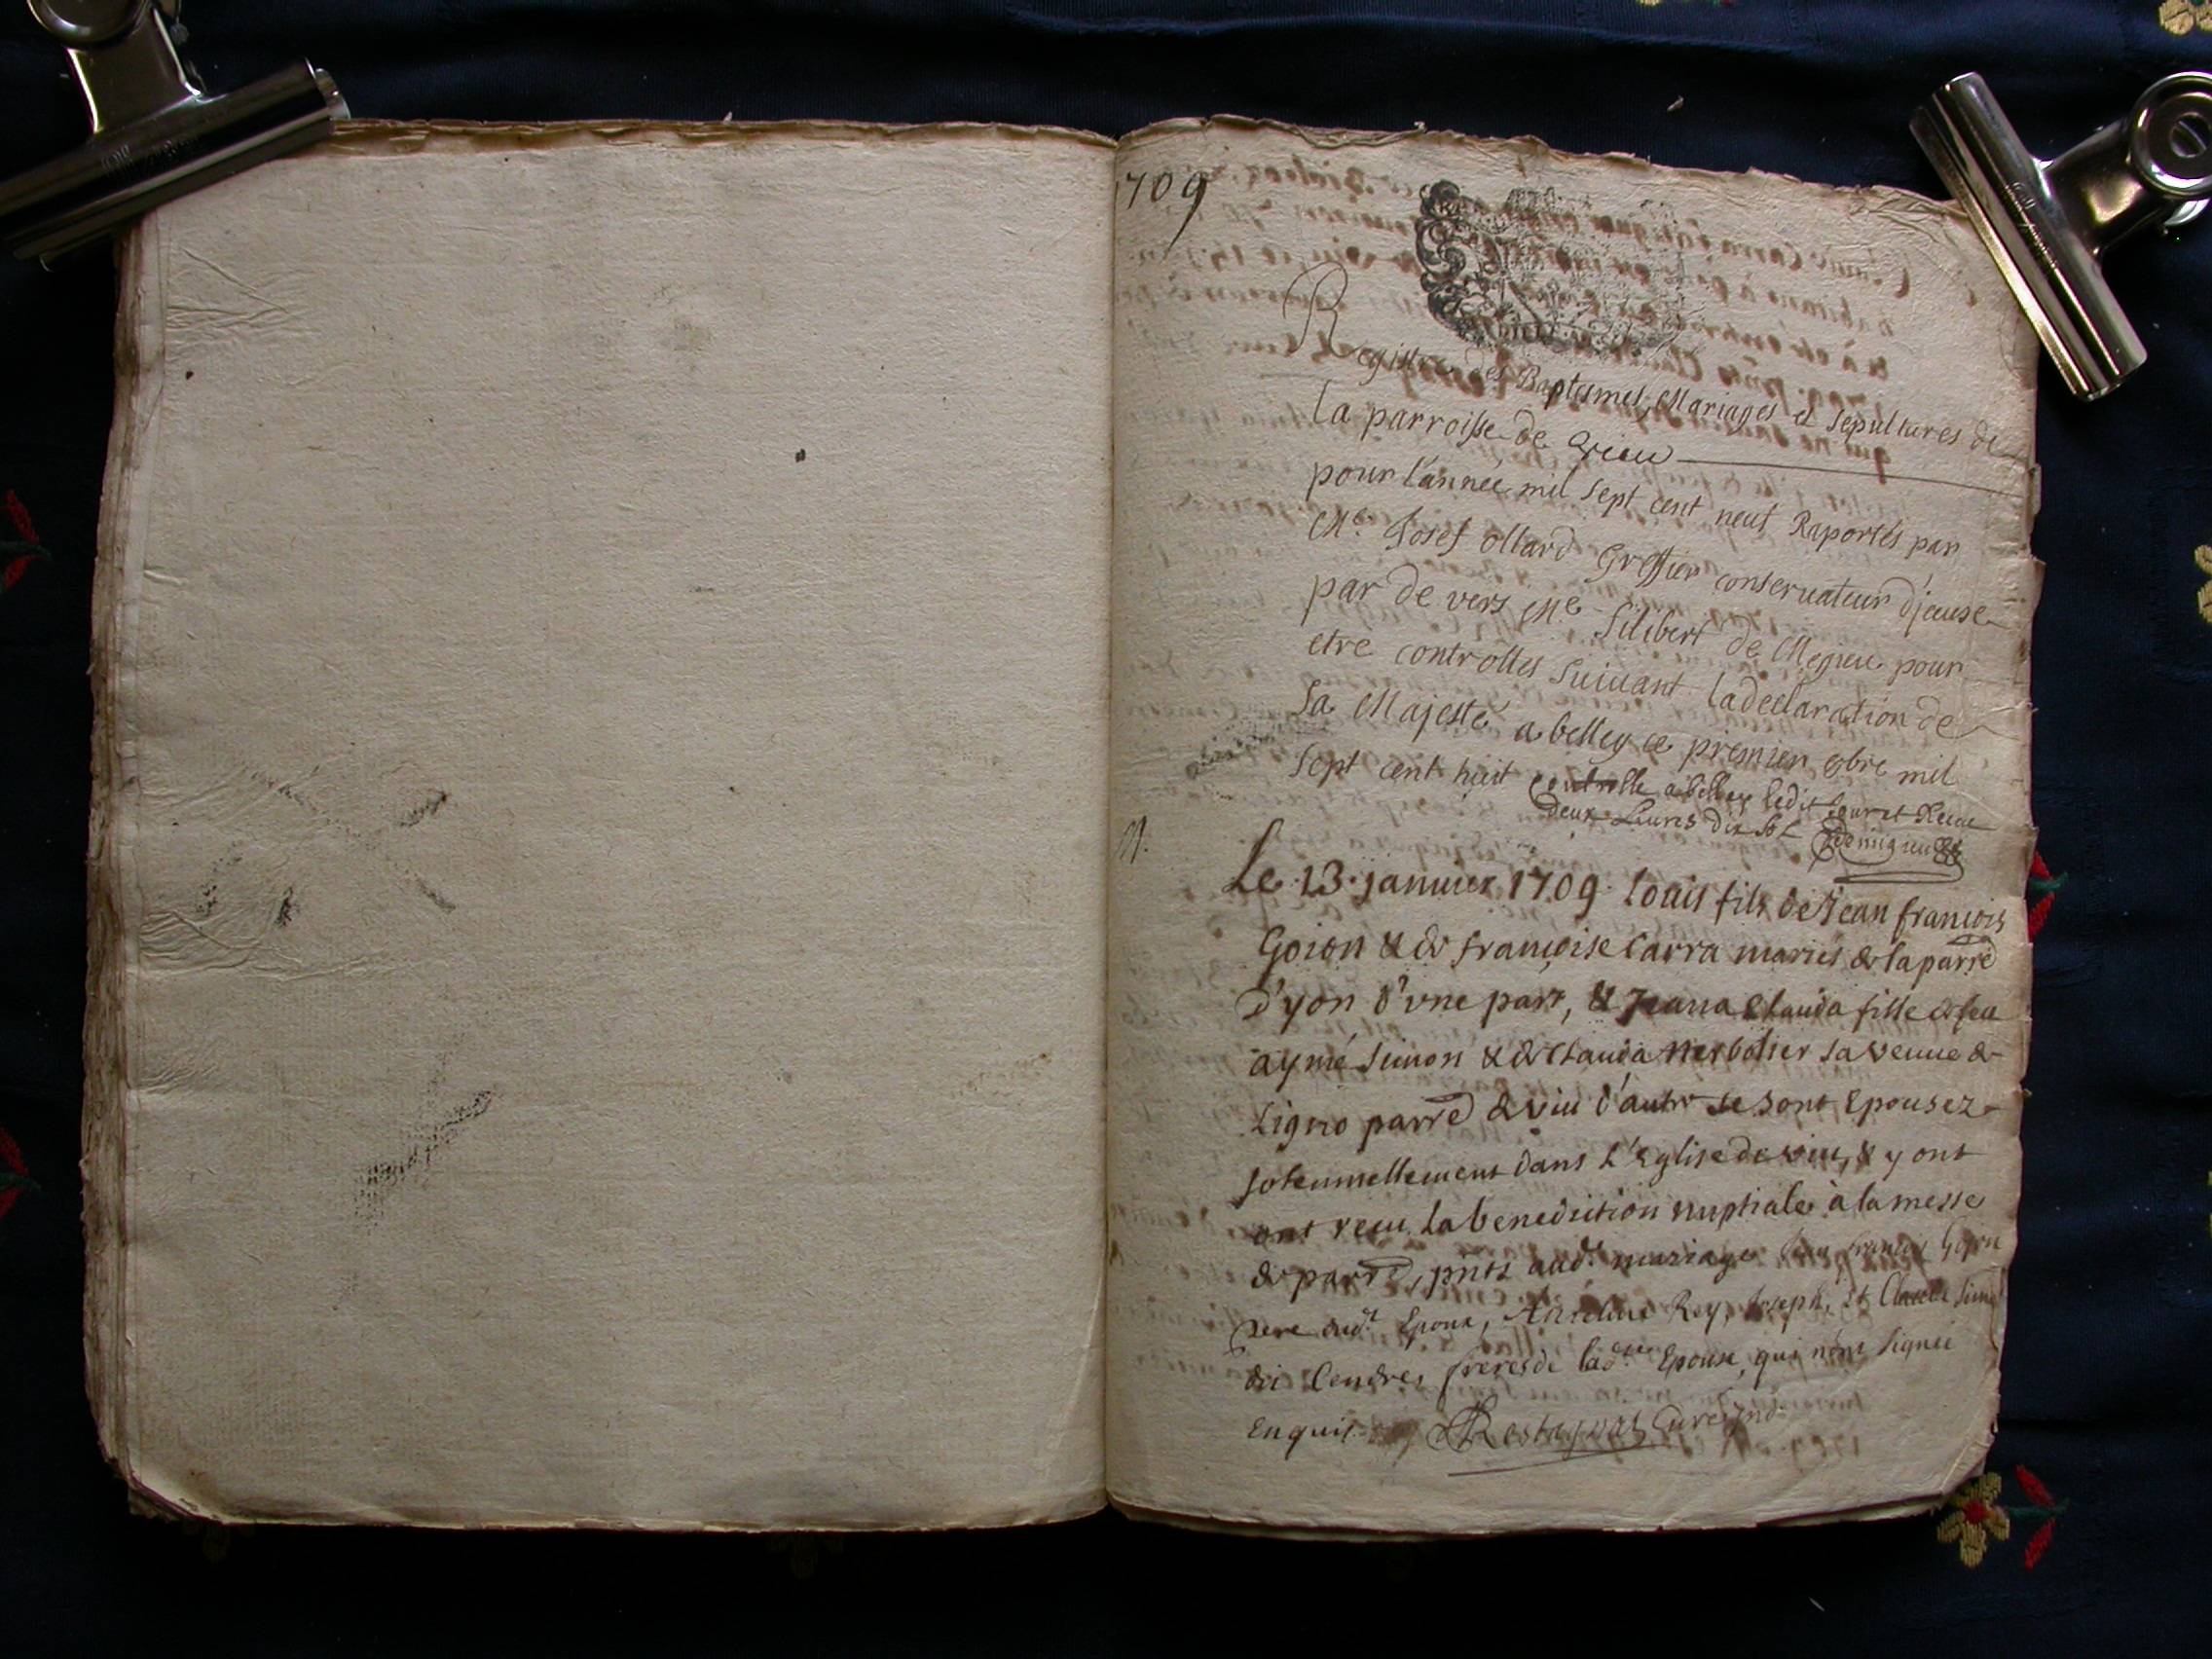 1709
Registre des Baptesmes, Mariages et Sepultures de
la parroisse de Vieu
pour l'année mil sept cent neuf Raportés par
Me. Josef ollard Greffier conservateur d'jcuse
par de vers Me Filibert de Megieu pour
etre controlles suivant la declaration de
sa Majesté a belley ce premier obre mil
sept cent huit controlle a belley ledit jour et Receu
deux Liures dix sols Demigieu
M.
Le 13 januier 1709 Louis fils de Jean françois
Goion & de françoise Carra mariés de la parre
d'yon d'vne part, & Jeana Clauda fille de feu
aymé Simon & de Clauda Merbolier sa veuue de
Ligno parre de viu d'autr se sont Epousez
solemnellement dans L'Eglise de viu, & y ont
ont receu la benediction nuptiale à la messe
de parre, pnts aud. mariage Jean françois Gojon
pere dud.t Epoux, Anthelme Rey, Joseph, et Claude Simon
dit Cendres freres de lad. Epouse, qui n'ont signé
Enquis Restaynot Curé jnd.